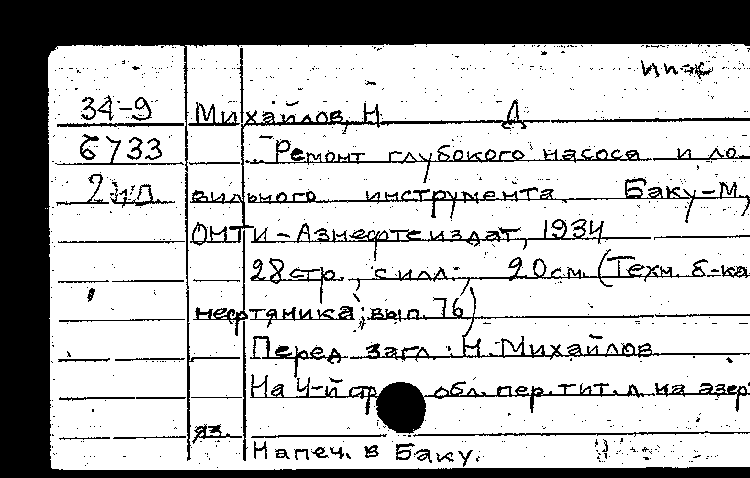 34-9 Михайлов, Н Д
6733 Ремонт глубокого насоса и ло
2 вильного инструмента Баку-М,
ОНТИ-Азнефтеиздат, 1934
28 стр., с илл., 20 см. (Техн. б-ка
нефтяника; вып. 76)
Перед загл.: Н. Михайлов
На 4-й стр обл. пер. тит. л. на азер
яз.
Напеч. в Баку.